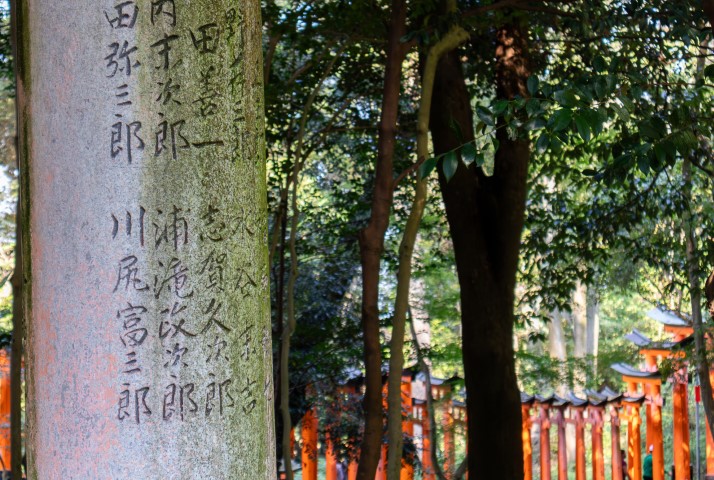 野 三郎 水谷宗吉
田善一 志賀久次郎
内 次郎 浦滝政次郎
田弥三郎 川尻富三郎